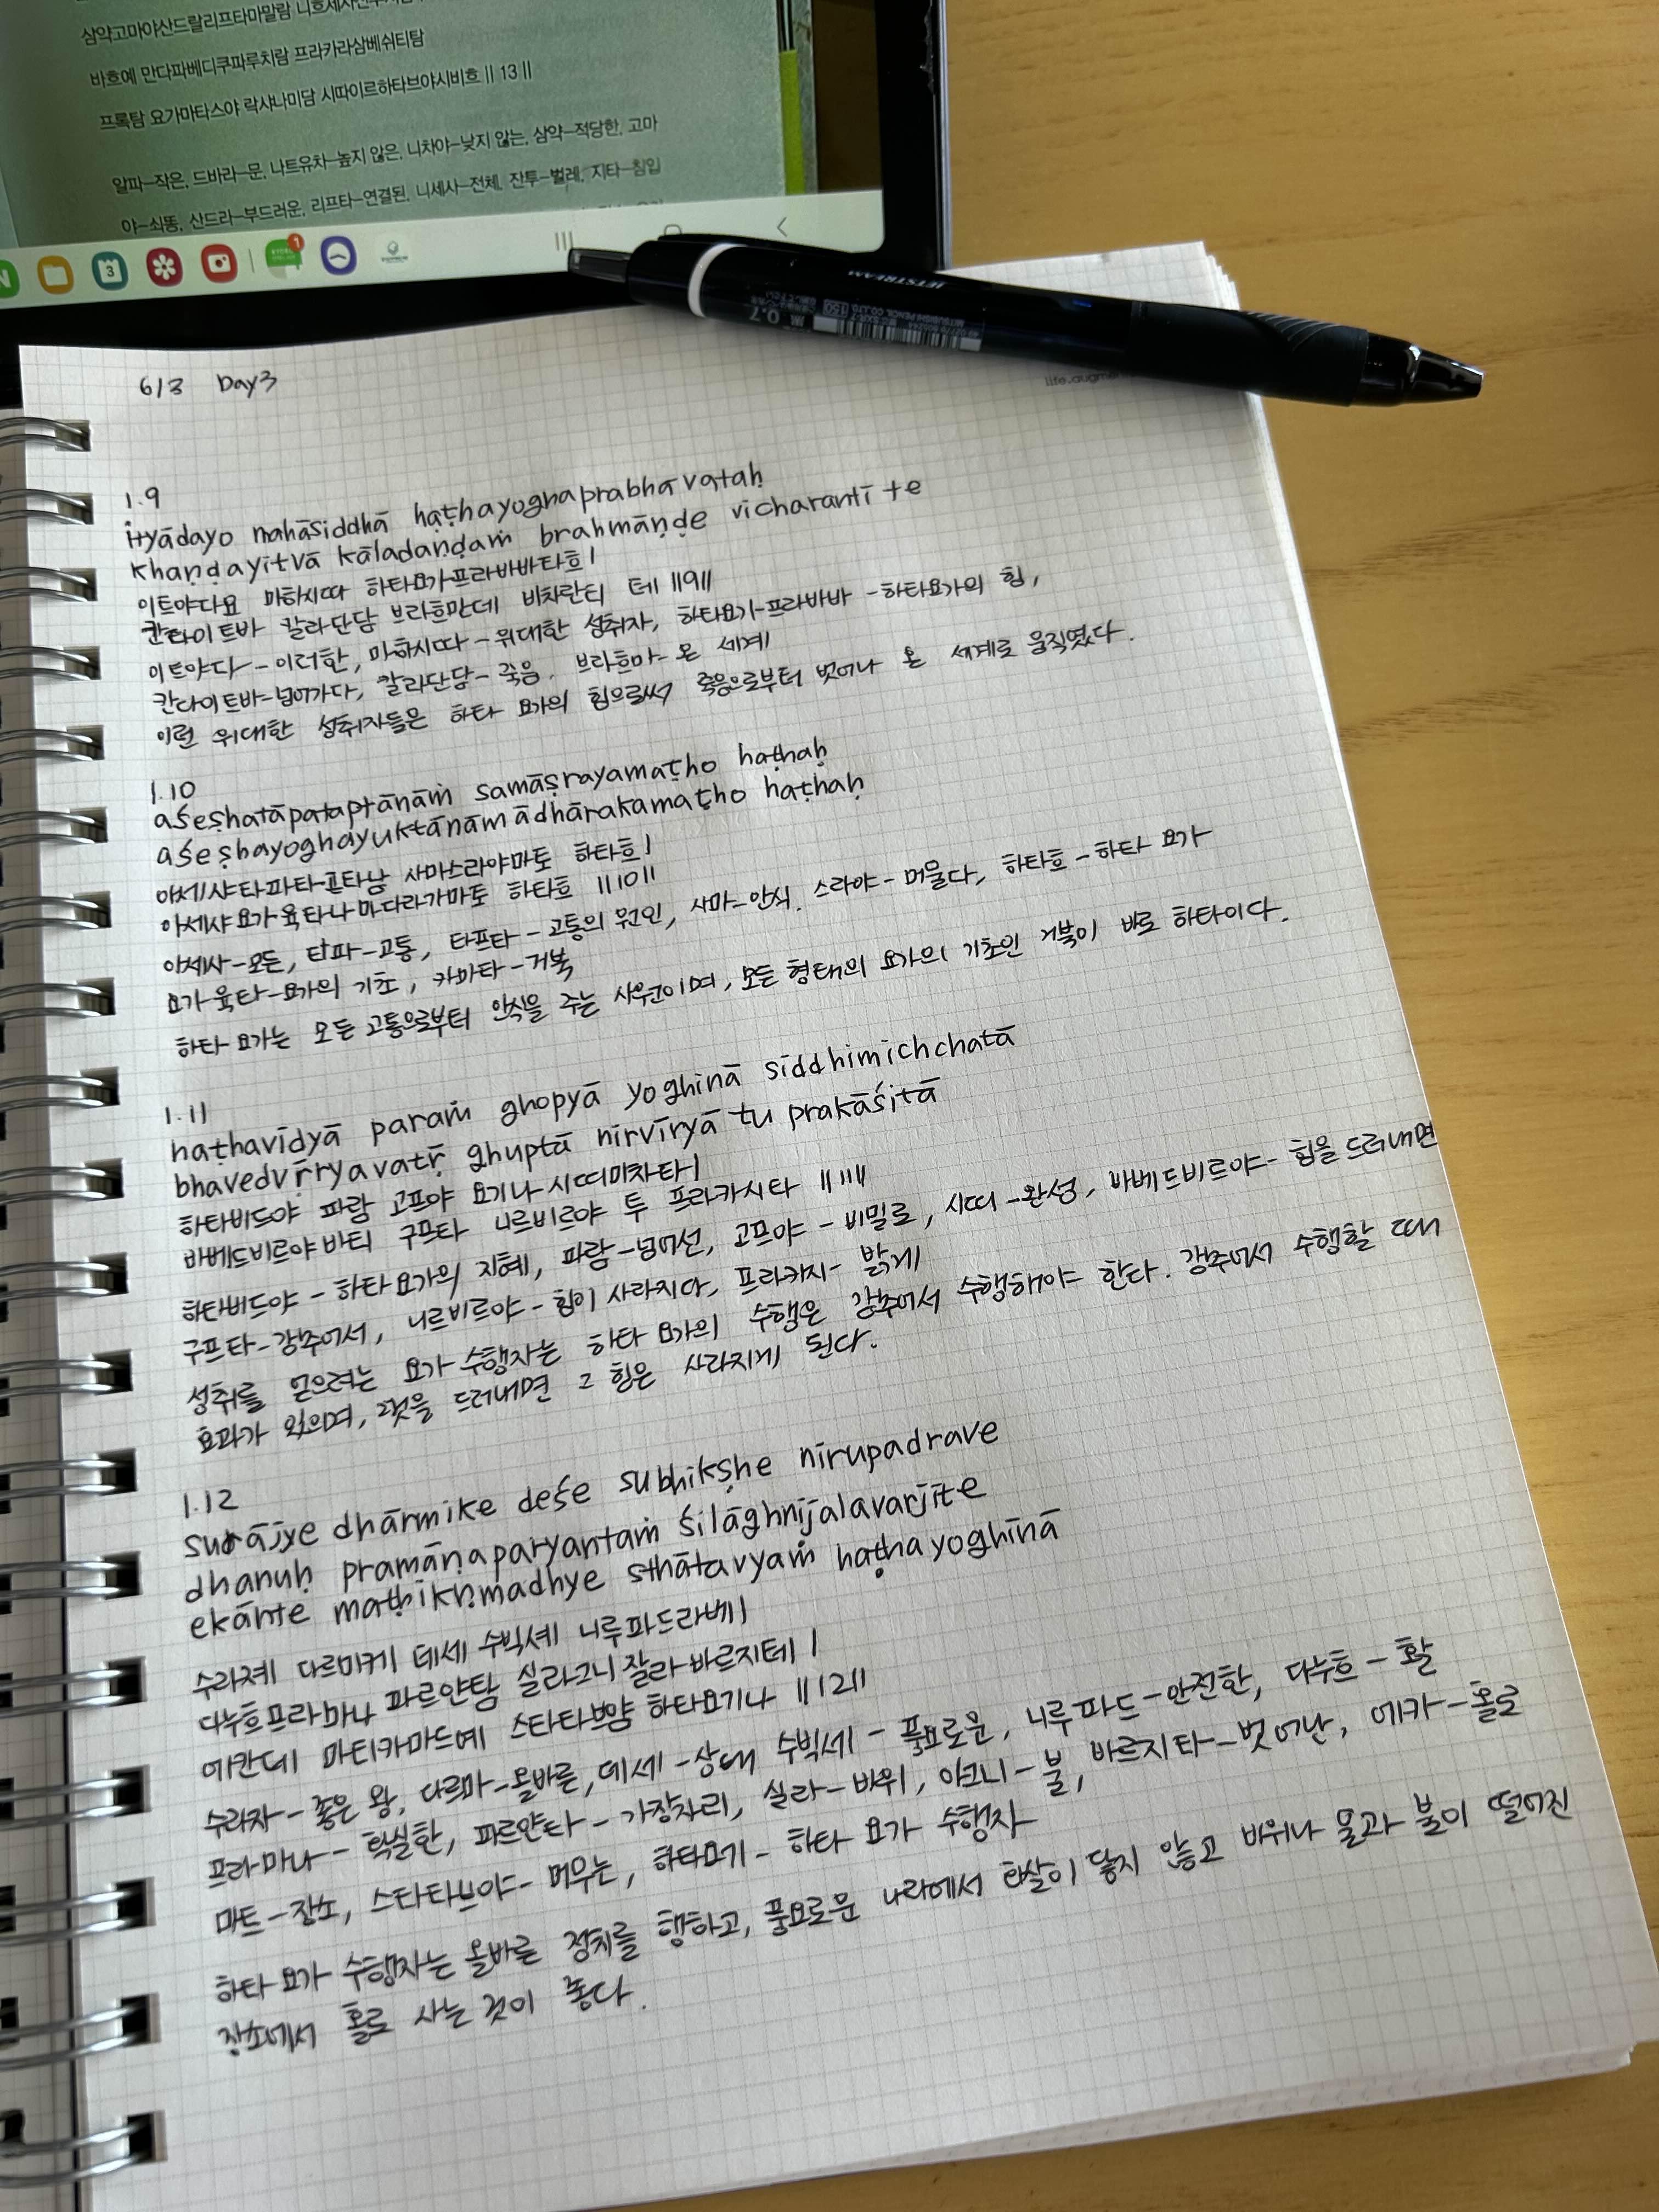 삼약고마야산드랄리프타마말람
바흐예 만다파베디쿠파루치람 프라카라삼베쉬티탐
프록탐 요가마타스야 락샤나미담 시따이르하타브야시비흐 || 13 ||
알파–작은, 드바라–문, 나트유차–높지 않은, 니차야–낮지 않는, 삼약–적당한, 고마
야–쇠똥, 산드라–부드러운, 리프타–연결된, 니세사–전체, 잔투–벌레, 지타–침입
3
1
JETSTREAM
0.7
6/3 Day3
1.9
ityādayo mahāsiddhā haṭhayoghaprabhavataḥ
khaṇḍayitvā kāladaṇḍaṁ brahmāṇḍe vicharanti te
이트야다요 마하시따 하타요가프라바바타흐 |
칸다이트바 칼라단담 브라흐만데 비차란티 테 ||9||
이트야다-이러한, 마하시따-위대한 성취자, 하타요가-프라바바-하타요가의 힘,
칸다이트바-넘어가다, 칼라단담-죽음, 브라흐마-온 세계
이런 위대한 성취자들은 하타 요가의 힘으로써 죽음으로부터 벗어나 온 세계로 움직였다.
1.10
aśeṣhatāpataptānāṁ samāṣrayamaṭho haṭhaḥ
aśeṣhayoghayuktānāmādhārakamaṭho haṭhaḥ
아세샤타파타프타남 사마스라야마토 하타흐 |
아세샤요가육타나마다라가마토 하타흐 ||10||
아세사-모든, 타파-고통, 타프타-고통의 원인, 사마-안식. 스라야-머물다, 하타흐-하타 요가
요가육타-요가의 기초, 카마타-거북
하타 요가는 모든 고통으로부터 안식을 주는 사원이며, 모든 형태의 요가의 기초인 거북이 바로 하타이다.
1.11
haṭhavidyā paraṁ ghopyā yoghinā siddhimichchatā
bhavedvīryavatī ghuptā nirvīryā tu prakāśitā
하타비드야 파람 고프야 요기나 시띠미차타 |
바베드비르야바티 구프타 니르비르야 투 프라카시타 ||11||
하타비드야-하타 요가의 지혜, 파람-넘어선, 고프야-비밀로, 시띠-완성, 바베드비르야-힘을 드러내면
구프타-감추어서, 니르비르야-힘이 사라지다, 프라카지-밝게
성취를 얻으려는 요가 수행자는 하타 요가의 수행은 감추어서 수행해야 한다. 감추어서 수행할 때
효과가 있으며, 그것을 드러내면 그 힘은 사라지게 된다.
1.12
surājye dhārmike deśe subhikṣhe nirupadrave
dhanuḥ pramāṇaparyantaṁ śilāghnijalavarjite
ekānte maṭhikāmadhye sthātavyaṁ haṭhayoghinā
수라졔 다르미케 데세 수빅셰 니루파드라베 |
다누흐프라마나 파르얀탐 실라그니잘라바르지테 |
에칸테 마티카마드예 스타타브얌 하타요기나 ||12||
수라자-좋은 왕, 다르마-올바른, 데세-상대 수빅세-풍요로운, 니루파드-안전한, 다누흐-활
프라마나-확실한, 파르얀타-가장자리, 실라-바위, 아그니-불, 바르지타-벗어난, 에카-홀로
마트-장소, 스타타브야-머무는, 하타요기-하타 요가 수행자
하타 요가 수행자는 올바른 정치를 행하고, 풍요로운 나라에서 화살이 닿지 않고 바위나 물과 불이 떨어진
장소에서 홀로 사는 것이 좋다.